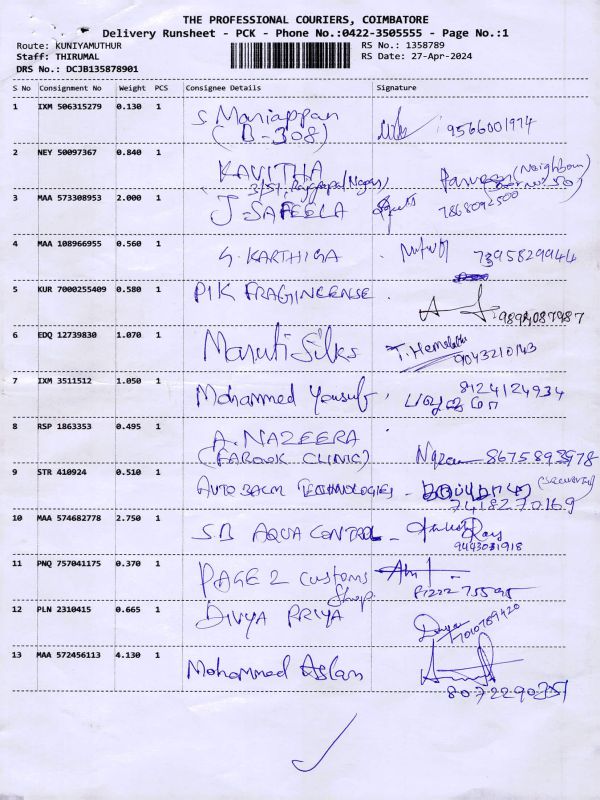 THE PROFESSIONAL COURIERS, COIMBATORE
Delivery Runsheet - PCK - Phone No.:0422-3505555 - Page No.:1
Route: KUNIYAMUTHUR
RS No.: 1358789
Staff: THIRUMAL
RS Date: 27-Apr-2024
DRS No.: DCJB135878901
S No Consignment No Weight PCS Consignee Details Signature
1 IXM 506315279 0.130 1 S. Maniappan 9566001974
(B-308)
2 NEY 50097367 0.840 1 KAVITHA Parveen (Neighbour
3/51, Nagar)
3 MAA 573308953 2.000 1 J-SAFEELA 7868092500
4 MAA 108966955 0.560 1 S. KARTHIGA 7395829944
5 KUR 7000255409 0.580 1 PIK FRAGINCENSE 9894087987
6 EDQ 12739830 1.070 1 Maruti Silks T. Hemalatha
9043210143
7 IXM 3511512 1.050 1 Mohammed Yousuf 8124124934
8 RSP 1863353 0.495 1 A. NAZEERA
(FAROOK CLINIC) 8675893978
9 STR 410924 0.510 1 AUTOBACM TECHNOLOGIES - (SECURITY)
7418270169
10 MAA 574682778 2.750 1 SB AQUA CONTROL - Raj
9443031918
11 PNQ 757041175 0.370 1 PAGE 2 Customs
Shop.
12 PLN 2310415 0.665 1 DIVYA PRIYA Divya
7010789420
13 MAA 572456113 4.130 1 Mohammed Aslam
8072290351